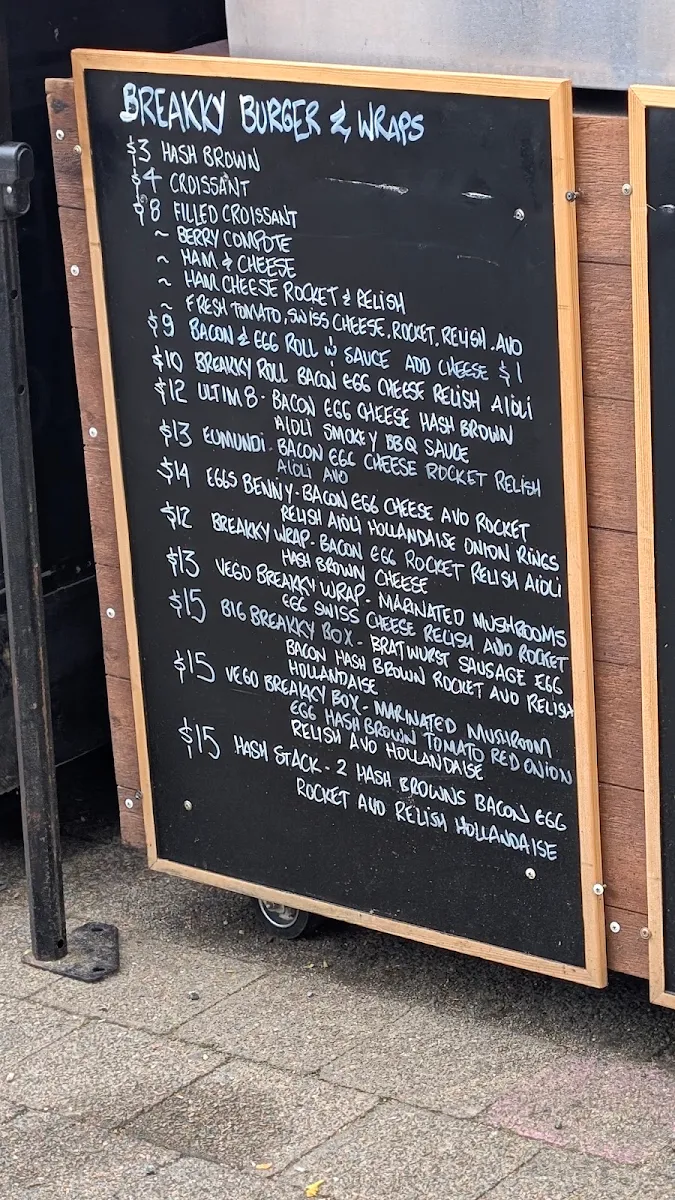 BREAKKY BURGER & WRAPS
$3 HASH BROWN
$4 CROISSANT
$8 FILLED CROISSANT
~ BERRY COMPOTE
~ HAM & CHEESE
~ HAM CHEESE ROCKET & RELISH
~ FRESH TOMATO, SWISS CHEESE, ROCKET, RELISH, AVO
$9 BACON & EGG ROLL W SAUCE ADD CHEESE $1
$10 BREAKKY ROLL BACON EGG CHEESE RELISH AIOLI
$12 ULTIM8 - BACON EGG CHEESE HASH BROWN
AIOLI SMOKEY BBQ SAUCE
$13 EUMUNDI - BACON EGG CHEESE ROCKET RELISH
AIOLI AVO
$14 EGGS BENNY - BACON EGG CHEESE AVO ROCKET
RELISH AIOLI HOLLANDAISE ONION RINGS
$12 BREAKKY WRAP - BACON EGG ROCKET RELISH AIOLI
HASH BROWN CHEESE
$13 VEGO BREAKKY WRAP - MARINATED MUSHROOMS
EGG SWISS CHEESE RELISH AVO ROCKET
$15 BIG BREAKKY BOX - BRATWURST SAUSAGE EGG
BACON HASH BROWN ROCKET AVO RELISH
HOLLANDAISE
$15 VEGO BREAKKY BOX - MARINATED MUSHROOM
EGG HASH BROWN TOMATO RED ONION
RELISH AVO HOLLANDAISE
$15 HASH STACK - 2 HASH BROWNS BACON EGG
ROCKET AVO RELISH HOLLANDAISE